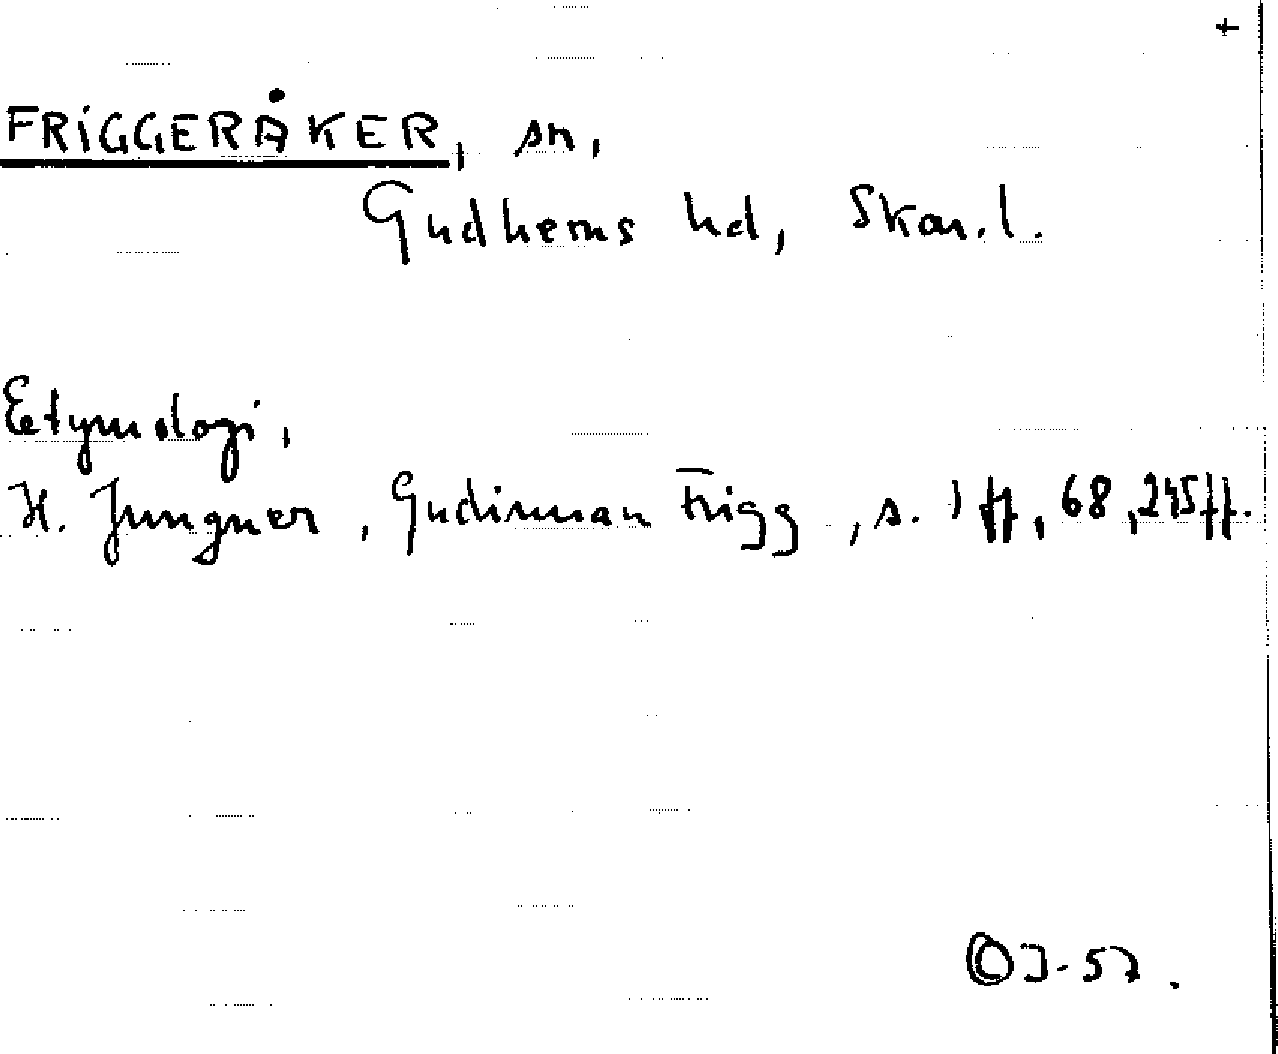 +
FRIGGERÅKER, sn,
Gudhems hd, Skar. l.
Etymologi,
H. Jungner, Gudinnan Frigg, s. 1 ff, 68, 245 ff.
57.